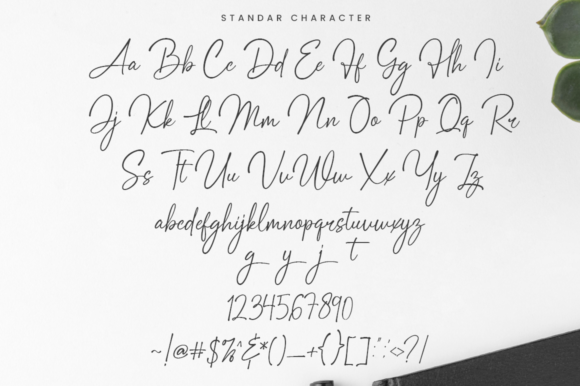 STANDAR CHARACTER
Aa Bb Cc Dd Ee Ff Gg Hh Ii
Jj Kk Ll Mm Nn Oo Pp Qq Rr
Ss Tt Uu Vv Ww Xx Yy Zz
abcdefghijklmnopqrstuvwxyz
g y j t
1234567890
~!@#$%^&*()_+{}[]:;"'<>?/